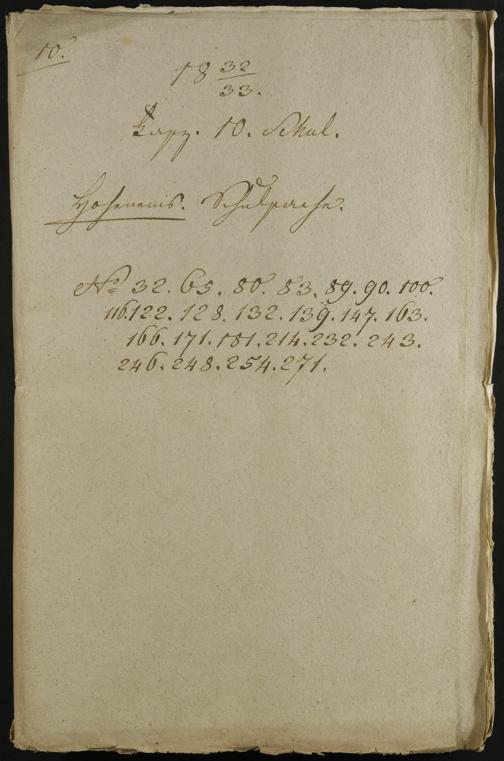 10.
18 32/33.
Fasz. 10. Schul.
Hohenems. Schulsache.
No 32. 65. 80. 83. 89. 90. 100.
116. 122. 128. 132. 139. 147. 163.
166. 171. 181. 214. 232. 243.
246. 248. 254. 271.